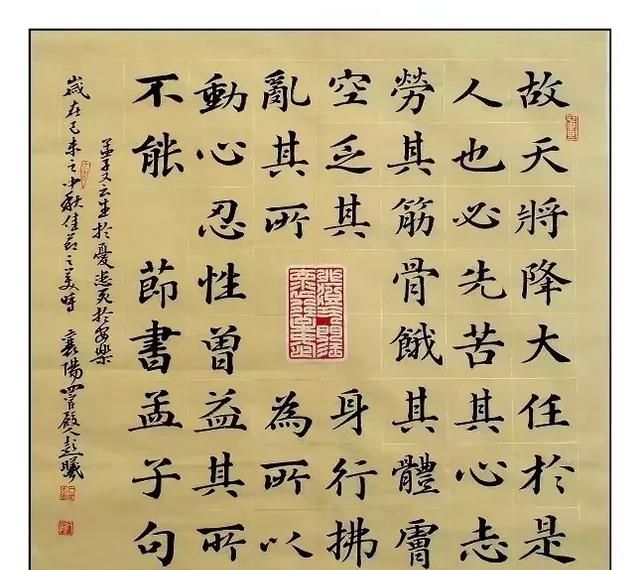 故天將降大任於是
人也必先苦其心志
勞其筋骨餓其體膚
空乏其身行拂
亂其所為所以
動心忍性曾益其所
不能 節書孟子句
孟子又云生於憂患死於安樂
歲在未之中秋佳節之美時 襄陽四官殿人